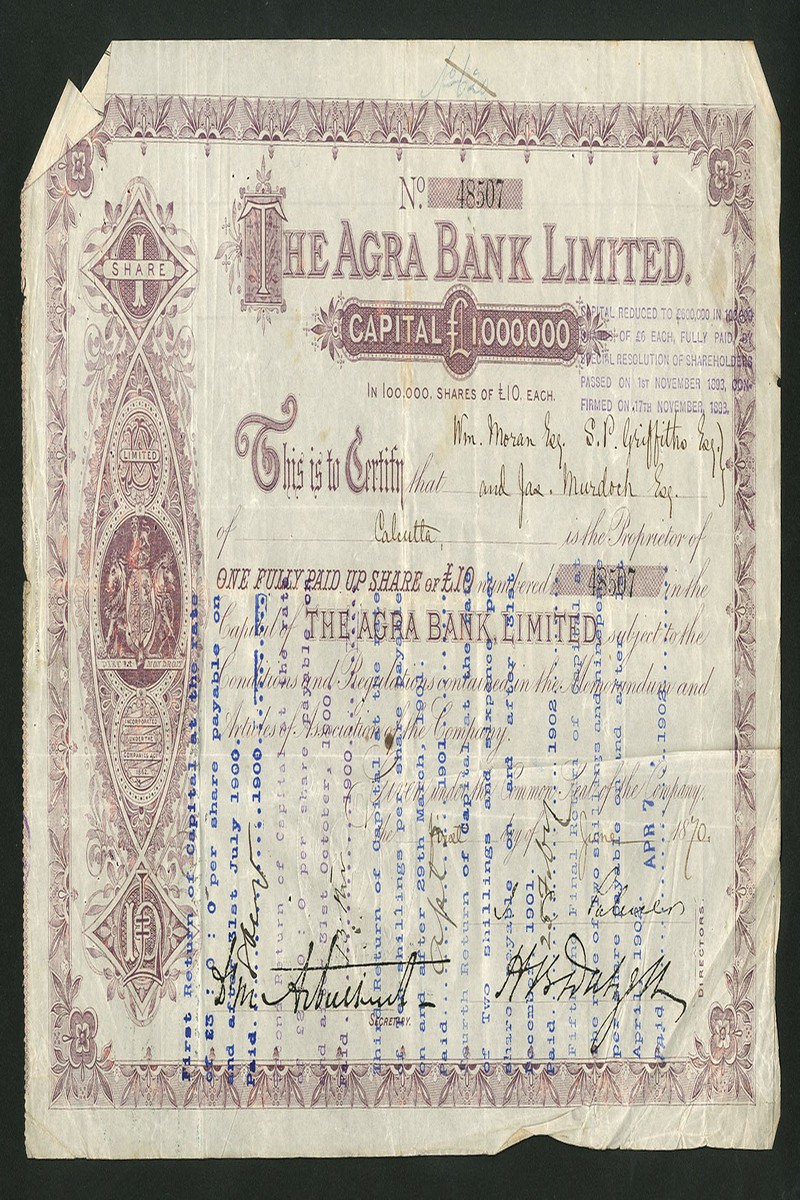 No. 48507
THE AGRA BANK LIMITED.
CAPITAL £1000000
IN 100,000, SHARES OF £10, EACH.
CAPITAL REDUCED TO £600,000 IN 100,000
SHARES OF £6 EACH, FULLY PAID, BY
SPECIAL RESOLUTION OF SHAREHOLDERS
PASSED ON 1ST NOVEMBER 1893, CON-
FIRMED ON 17TH NOVEMBER, 1893.
1
SHARE
LIMITED
DIEU ET MON DROIT
INCORPORATED
UNDER THE
COMPANIES ACT
1862
Wm. Moran Esq. S. P. Griffiths Esq.
This is to Certify that and Jas. Murdoch Esq.
of Calcutta, is the Proprietor of
ONE FULLY PAID UP SHARE OF £10 numbered 48507 in the
Capital of THE AGRA BANK, LIMITED subject to the
Conditions and Regulations contained in the Memorandum and
Articles of Association of the Company.
Given under the Common Seal of the Company,
the first day of June 1870.
SECRETARY.
DIRECTORS.
First Return of Capital at the rate
of £3 : 0 : 0 per share payable on
and after 31st July 1900.
Paid 1900.
Second Return of Capital at the rate
per share payable on
and after 31st October, 1900
Paid 1900.
Third Return of Capital at the rate
of shillings per share payable
on and after 29th March, 1901.
Paid 1901
Fourth Return of Capital at the rate
of Two shillings and sixpence per
share payable on and after 31st
December 1901.
Paid 1902
Fifth & Final Return of Capital at
the rate of Two shillings and ninepence
per share payable on and after
April 190
Paid APR 7 1902